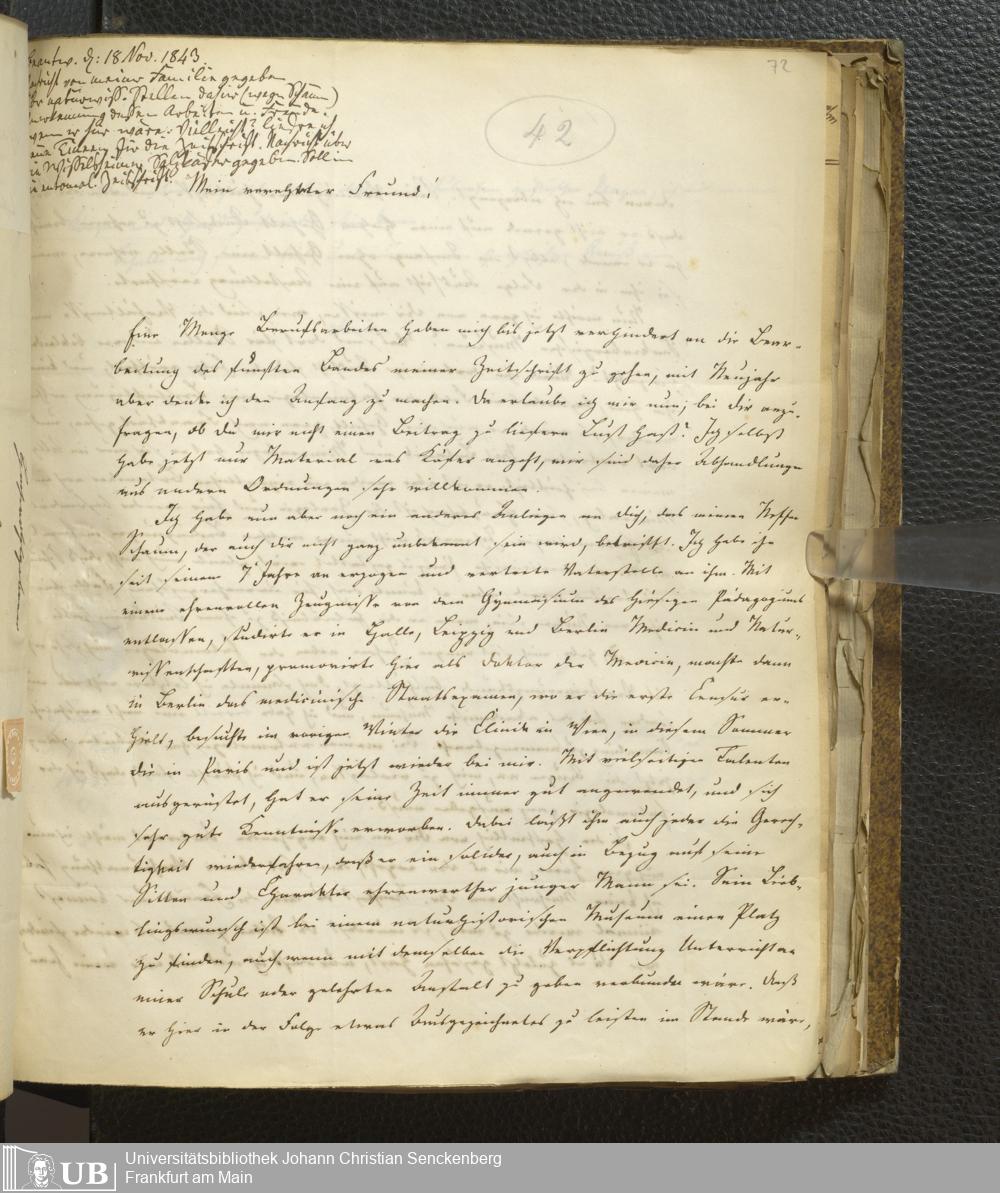 72
42
beantw. d: 18 Nov. 1843.
Nachricht von meiner Familie gegeben
naturwiss. Stellen dafür (wegen Schaum)
Anerkennung dessen Arbeiten u. Freude,
wenn er hier wäre. Vielleicht liefere ich
eine Einlage für die Zeitschrift. Nachricht über
die Wisselsheimer Salzkäfer gegeben. Soll in
entomol. Zeitschrift.
Mein verehrter Freund!
Eine Menge Berufsarbeiten haben mich bis jetzt verhindert an die Bear-
beitung des fünften Bandes meiner Zeitschrift zu gehen, mit Neujahr
aber denke ich den Anfang zu machen. Da erlaube ich mir nun, bei Dir anzu-
fragen, ob Du mir nicht einen Beitrag zu liefern Lust hast? Ich selbst
habe jetzt nur Material was Käfer angeht, mir sind daher Abhandlungen
aus andern Ordnungen sehr willkommen.
Ich habe nun aber noch ein anderes Anliegen an Dich, das meinen Neffen
Schaum, der auch Dir nicht ganz unbekannt sein wird, betrifft. Ich habe ihn
seit seinem 7 Jahre an erzogen und vertrete Vaterstelle an ihm. Mit
einem ehrenvollen Zeugnisse von dem Gymnasium des hiesigen Pädagogiums
entlassen, studirte er in Halle, Leipzig und Berlin Medicin und Natur-
wissenschaften, promovirte hier als Doktor der Medicin, machte dann
in Berlin das medicinische Staatsexamen, wo er die erste Censur er-
hielt, besuchte im vorigen Winter die Clinik in Wien, in diesem Sommer
die in Paris und ist jetzt wieder bei mir. Mit vielseitigen Talenten
ausgerüstet, hat er seine Zeit immer gut angewendet, und sich
sehr gute Kenntnisse erworben. Dabei läßt ihm auch jeder die Gerech-
tigkeit wiederfahren, daß er ein solider, auch in Bezug auf seine
Sitten und Charakter ehrenwerther junger Mann sei. Sein Lieb-
lingswunsch ist bei einem naturhistorischen Museum einen Platz
zu finden, auch wenn mit demselben die Verpflichtung Unterricht an
einer Schule oder gelehrten Anstalt zu geben verbunden wäre. Daß
er hier in der Folge etwas Ausgezeichnetes zu leisten im Stande wäre,
UB
Universitätsbibliothek Johann Christian Senckenberg
Frankfurt am Main